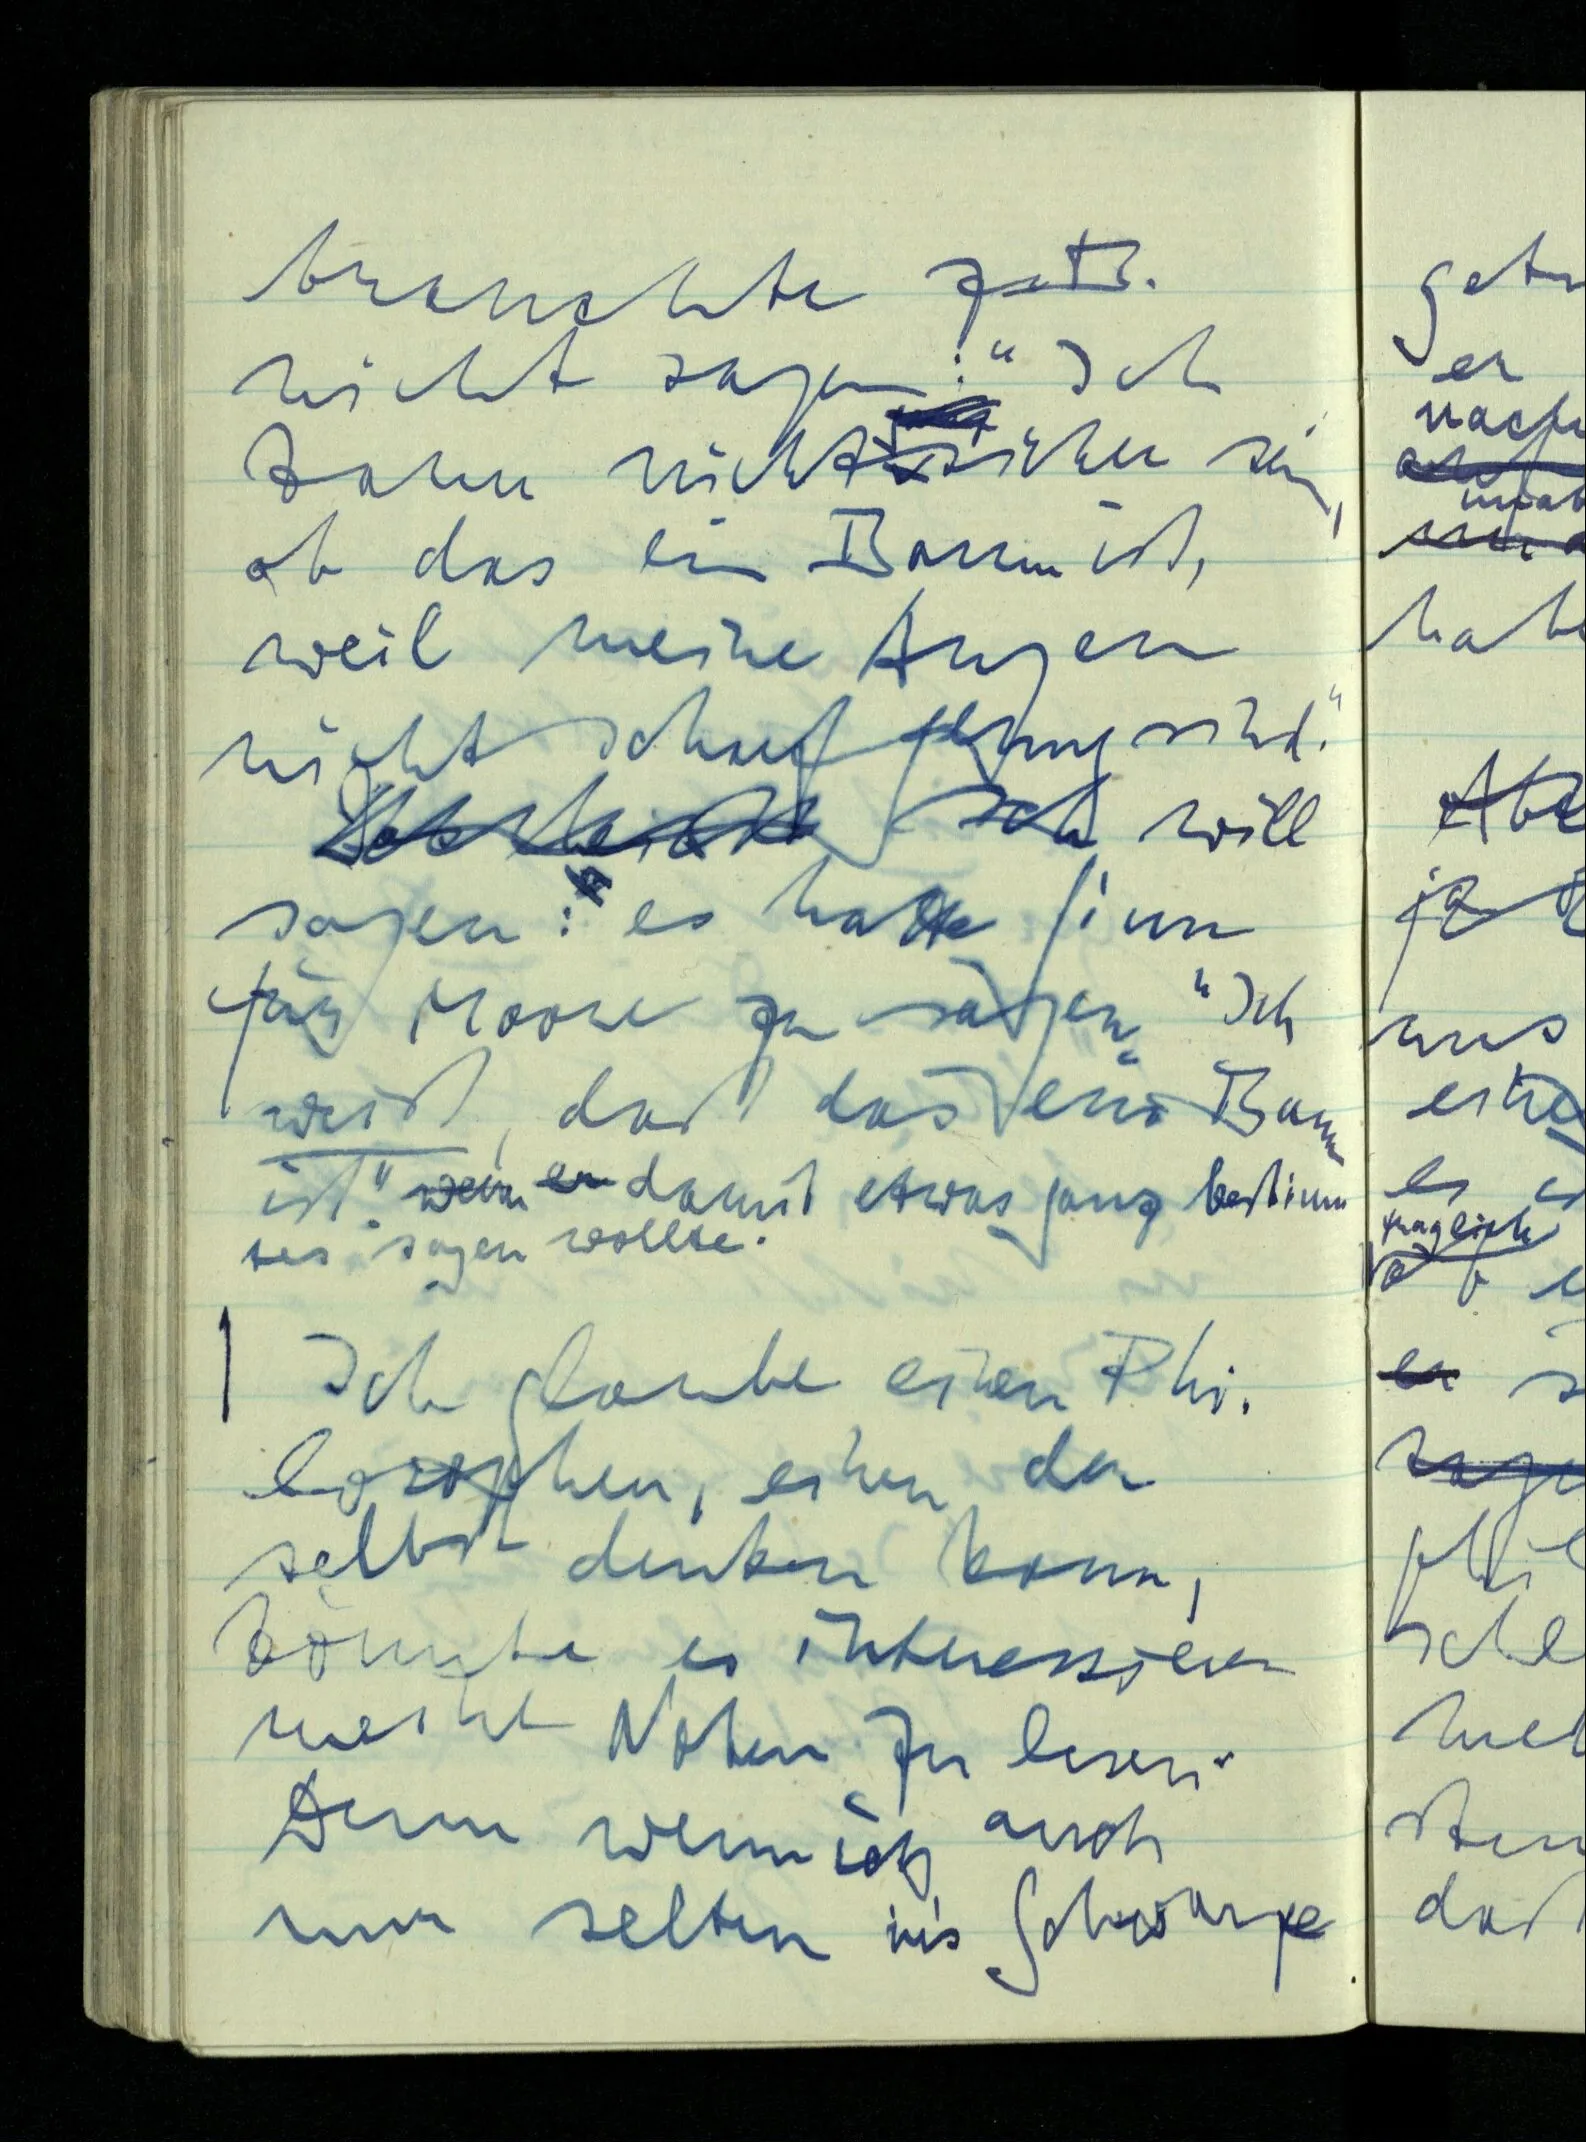 brauchte z.B.
nicht sagen: "Ich
kann nicht sicher sein,
ob das ein Baum ist,
weil meine Augen
nicht scharf genug sind."
Ich will
sagen: es hatte Sinn
für Moore zu sagen "Ich
weiß, daß das ein Baum
ist" wenn er damit etwas ganz bestimm
tes sagen wollte.
Ich glaube einen Phi-
losophen, einen der
selbst denken kann,
könnte es interessieren
meine Noten zu lesen.
Denn wenn ich auch
nur selten ins Schwarze
er
habe
uns
es
fraglich
ob
er
daß